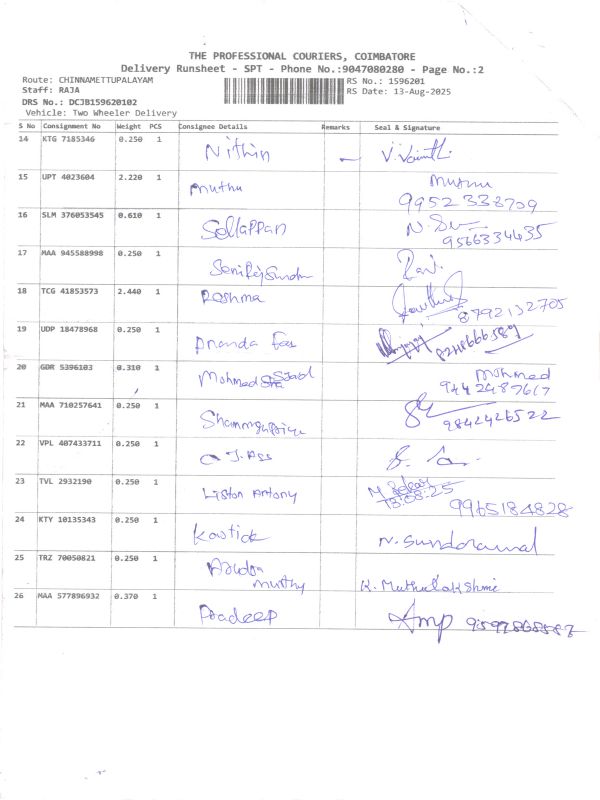 THE PROFESSIONAL COURIERS, COIMBATORE
Delivery Runsheet - SPT - Phone No.:9047080280 - Page No.:2
Route: CHINNAMETTUPALAYAM RS No.: 1596201
Staff: RAJA RS Date: 13-Aug-2025
DRS No.: DCJB159620102
Vehicle: Two Wheeler Delivery
S No Consignment No Weight PCS Consignee Details Remarks Seal & Signature
14 KTG 7185346 0.250 1 Nithin
15 UPT 4023604 2.220 1 muthu
9952338709
16 SLM 376053545 0.610 1 Sellappan
9566334435
17 MAA 945588998 0.250 1 Ravi.
18 TCG 41853573 2.440 1 Reshma
8792132705
19 UDP 18478968 0.250 1 Ananda
8248666589
20 GDR 5396103 0.310 1 Mohmed Mohmed
9442487617
21 MAA 710257641 0.250 1
9842426522
22 VPL 407433711 0.250 1
23 TVL 2932190 0.250 1 Liston Antony
13.08.25 9965184828
24 KTY 10135343 0.250 1 Kowtick N. Sundorawal
25 TRZ 70050821 0.250 1
murthy K. Muthulakshmi
26 MAA 577896932 0.370 1 Pradeep